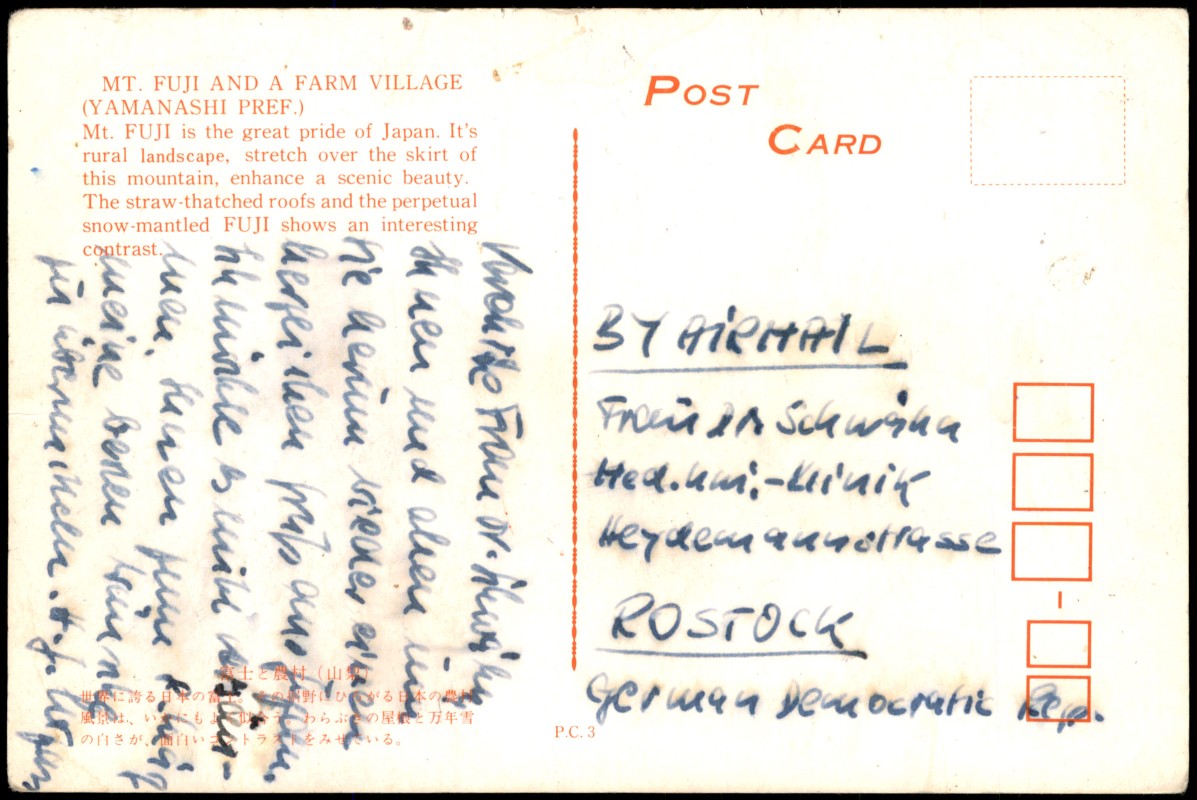 MT. FUJI AND A FARM VILLAGE
(YAMANASHI PREF.)
Mt. FUJI is the great pride of Japan. It's
rural landscape, stretch over the skirt of
this mountain, enhance a scenic beauty.
The straw-thatched roofs and the perpetual
snow-mantled FUJI shows an interesting
contrast.
Frau Dr.
Ihnen und allen
Sie herum wieder einen
herzlichen aus Japan.
Ich möchte es nicht
men, Ihnen
meine besten
zu übermitteln.
富士と農村（山梨）
世界に誇る日本の富士。その裾野にひろがる日本の農村
風景は、いかにもよく似合う。わらぶきの屋根と万年雪
の白さが、面白いコントラストをみせている。
P.C. 3
POST
CARD
BY AIRMAIL
Frau Dr.
Med. Uni.-Klinik
Heydemannstrasse
ROSTOCK
German Democratic Rep.